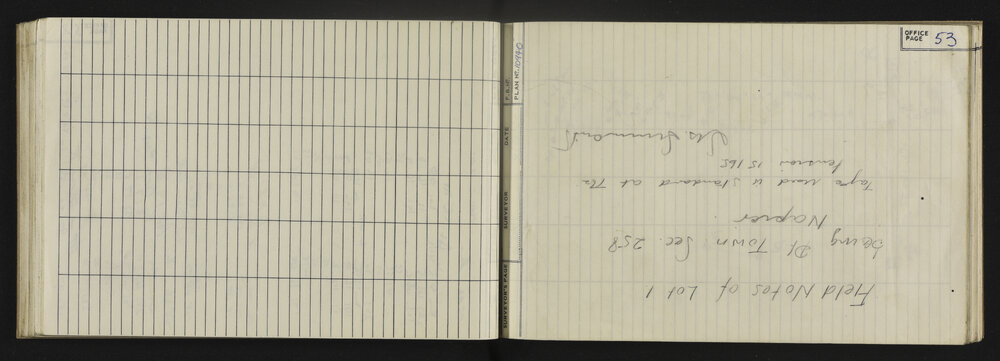 OFFICE PAGE 53
F.B. Nº.
PLAN Nº. 10940
DATE
SURVEYOR
SURVEYOR'S PAGE
Field Notes of Lot 1
being Pt Town Sec. 258
Napier
Tape used is standard at 71lbs
tension 15 lbs